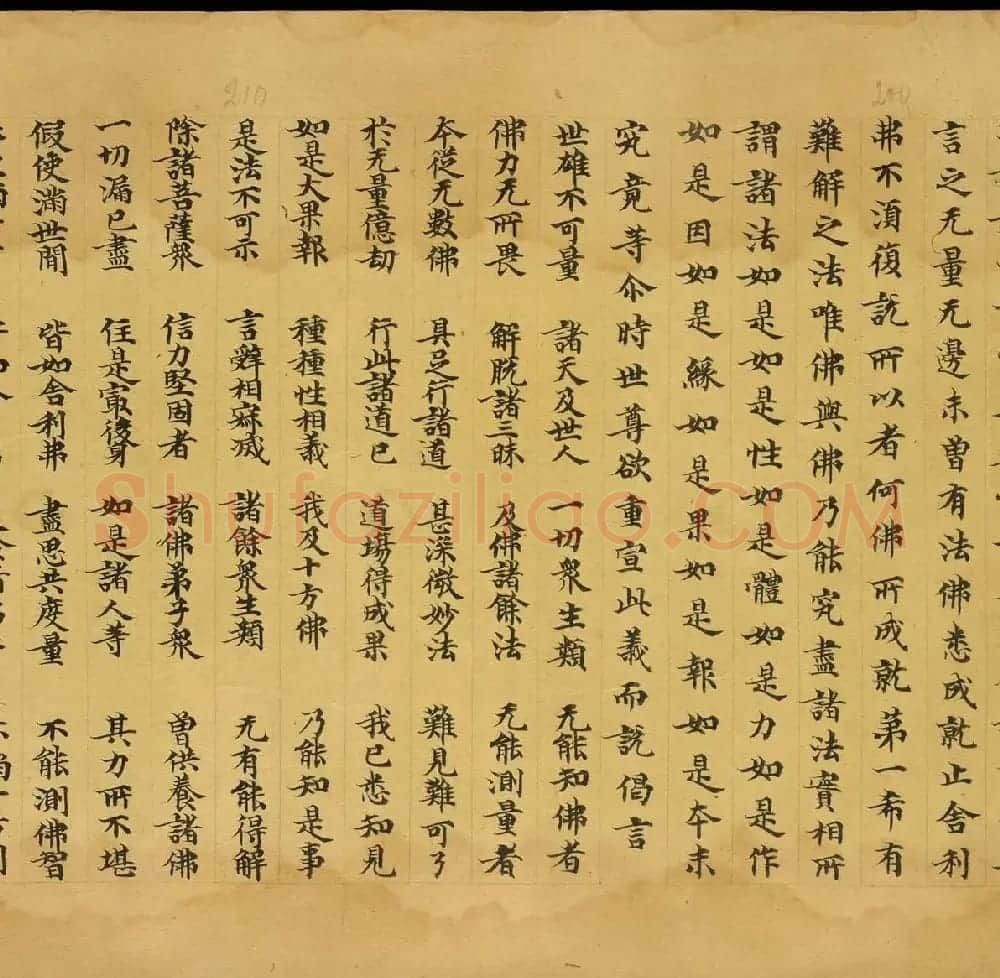 言之无量无邊未曾有法佛悉成就止舍利
弗不湏復説所以者何佛所成就第一希有
難解之法唯佛與佛乃能究盡諸法實相所
謂諸法如是相如是性如是體如是力如是作
如是因如是緣如是果如是報如是本末
究竟等尒時世尊欲重宣此義而説偈言
世雄不可量 諸天及世人 一切衆生類 无能知佛者
佛力无所畏 解脱諸三昧 及佛諸餘法 无能測量者
本從无數佛 具足行諸道 甚深微妙法 難見難可了
於无量億劫 行此諸道已 道場得成果 我已悉知見
如是大果報 種種性相義 我及十方佛 乃能知是事
是法不可示 言辭相寂滅 諸餘衆生類 无有能得解
除諸菩薩衆 信力堅固者 諸佛弟子衆 曾供養諸佛
一切漏已盡 住是寂後身 如是諸人等 其力所不堪
假使滿世間 皆如舍利弗 盡思共度量 不能測佛智
200
210
Shufaziliao.COM